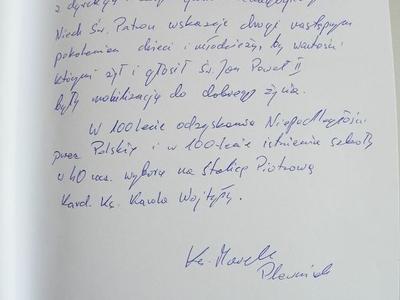 z dyrekcją i
Niech Św. Patron wskazuje drogi następnym
pokoleniom dzieci i młodzieży, by wartości
którymi żył i głosił Św. Jan Paweł II
były mobilizacją do dobrego życia.
W 100 lecie odzyskania Niepodległości
przez Polskę i w 100-lecie istnienia szkoły
w 40 rocz. wyboru na Stolicę Piotrową
Kard. Ks. Karola Wojtyły.
Ks. Marek